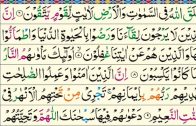 اللّٰهُ فِي السَّمٰوٰتِ وَالْاَرْضِ لَاٰيٰتٍ لِّقَوْمٍ يَّتَّقُوْنَ ۝ اِنَّ
الَّذِيْنَ لَا يَرْجُوْنَ لِقَآءَنَا وَرَضُوْا بِالْحَيٰوةِ الدُّنْيَا وَاطْمَاَنُّوْا
بِهَا وَالَّذِيْنَ هُمْ عَنْ اٰيٰتِنَا غٰفِلُوْنَ ۝ اُولٰٓئِكَ مَاْوٰىهُمُ
كَانُوْا يَكْسِبُوْنَ ۝ اِنَّ الَّذِيْنَ اٰمَنُوْا وَعَمِلُوا الصّٰلِحٰتِ
رَبُّهُمْ بِاِيْمَانِهِمْ تَجْرِيْ مِنْ تَحْتِهِمُ
النَّعِيْمِ ۝ دَعْوٰىهُمْ فِيْهَا سُبْحٰنَكَ اللّٰهُمَّ وَتَحِيَّتُهُمْ